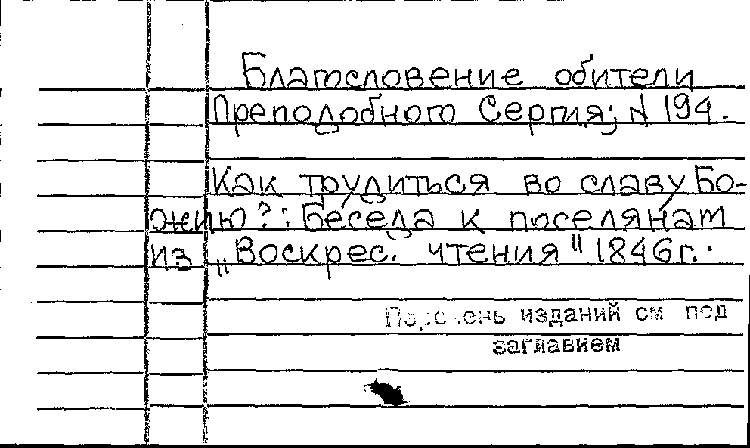 Благословение обители
Преподобного Сергия; N 194.
Как трудиться во славу Бо-
жию?: Беседа к поселянам
из „Воскрес. чтения" 1846г.
Перечень изданий см под
заглавием